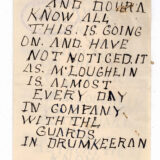 AND DOWRA
KNOW ALL
THIS. IS GOING
ON. AND HAVE
NOT NOTICED.IT
AS. McLOUGHLIN
IS ALMOST
EVERY DAY
IN COMPANY
WITH THE
GUARDS
IN DRUMKEERAN